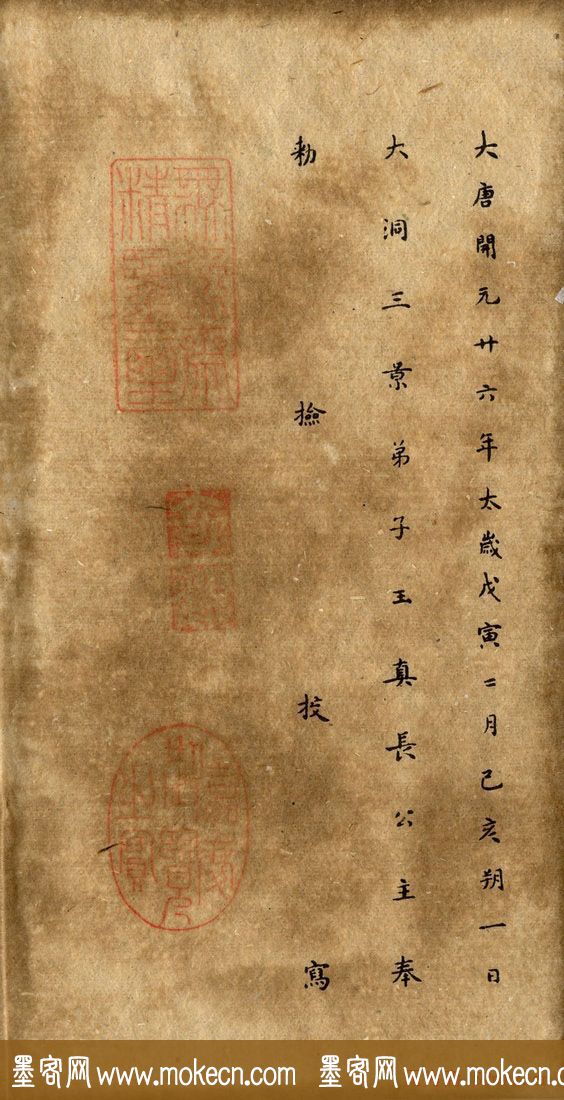 大唐開元廿六年太歲戊寅二月己亥朔一日
大洞三景弟子玉真長公主奉
勅檢校寫
墨客网 www.mokecn.com 墨客网 www.mokecn.com